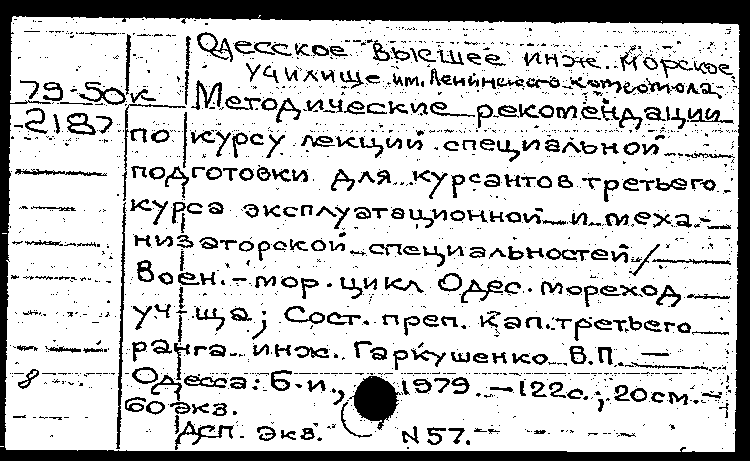 Одесское высшее инж. морское
училище им. Ленинского комсомола.
79-50к Методические рекомендации
2187 по курсу лекций специальной
подготовки для курсантов третьего
курса эксплуатационной и меха-
низаторской специальностей /
Воен.-мор. цикл Одес. мореход
уч-ща; Сост. преп. кап. третьего
ранга инж. Гаркушенко В.П. —
8 Одесса: Б.и., 1979. — 122с.; 20см. —
60 экз.
Дсп. экз. N 57. —